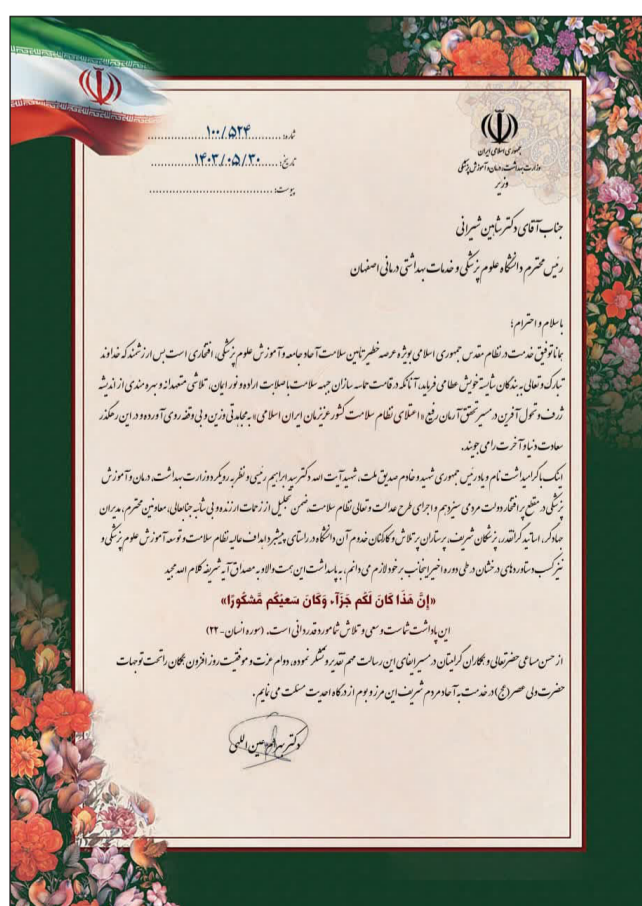 جمهوری اسلامی ایران
وزارت بهداشت، درمان و آموزش پزشکی
وزیر
شماره: ۱۰۰/۵۲۴
تاریخ: ۱۴۰۳/۰۵/۳۰
پیوست:
جناب آقای دکتر شاهین شیرانی
رئیس محترم دانشگاه علوم پزشکی و خدمات بهداشتی درمانی اصفهان
با سلام و احترام؛
همانا توفیق خدمت در نظام مقدس جمهوری اسلامی بویژه عرصه خطیر تأمین سلامت آحاد جامعه و آموزش علوم پزشکی، افتخاری است بس ارزشمند که خداوند
تبارک و تعالی به بندگان شایسته خویش عطا می فرماید، آنانکه در قامت حماسه سازان جبهه سلامت با صلابت اراده و نور ایمان، تلاشی متعهدانه و بهره مندی از اندیشه
ژرف و تحول آفرین در مسیر تحقق آرمان رفیع «اعتلای نظام سلامت کشور عزیزمان ایران اسلامی» به مجاهدتی وزین و بی وقفه روی آورده و در این رهگذر
سعادت دنیا و آخرت را می جویند.
اینک با گرامیداشت نام و یاد رئیس جمهوری شهید و خادم صدیق ملت، شهید آیت الله دکتر سید ابراهیم رئیسی و نظر به رویکرد وزارت بهداشت، درمان و آموزش
پزشکی در مقطع پر افتخار دولت مردمی سیزدهم و اجرای طرح عدالت و تعالی نظام سلامت، ضمن تجلیل از زحمات ارزنده و بی شائبه جنابعالی، معاونین محترم، مدیران
جهادگر، اساتید گرانقدر، پزشکان شریف، پرستاران پر تلاش و کارکنان خدوم آن دانشگاه در راستای پیشبرد اهداف عالیه نظام سلامت و توسعه آموزش علوم پزشکی و
نیز کسب دستاوردهای درخشان در طی دوره اخیر اینجانب بر خود لازم می دانم، به پاسداشت این همت والا و به مصداق آیه شریفه کلام الله مجید
«إِنَّ هَذَا كَانَ لَكُم جَزَآء وَكَانَ سَعيُكُم مَّشكُورًا»
این پاداشت شماست و سعی و تلاش شما مورد قدردانی است. (سوره انسان-۲۲)
از حسن مساعی حضرتعالی و همکاران گرامیتان در مسیر ایفای این رسالت مهم تقدیر و تشکر نموده، دوام عزت و موفقیت روز افزون همگان را تحت توجهات
حضرت ولی عصر (عج) در خدمت به آحاد مردم شریف این مرز و بوم از درگاه احدیت مسئلت می نمایم.
دکتر بهرام عین اللهی